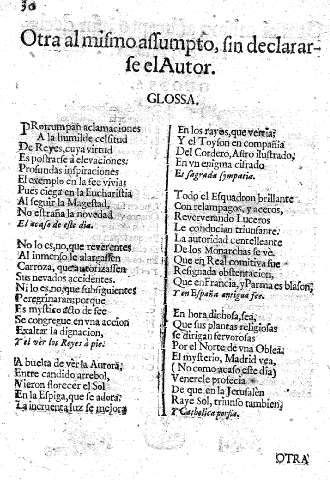 30
Otra al mismo assumpto, sin declarar-
se el Autor.
GLOSSA.
PRorrumpan aclamaciones
A la humilde celsitud
De Reyes, cuya virtud
Es postrarse à elevaciones:
Profundas inspiraciones
El exemplo en la fee vivia:
Pues ciega en la Eucharistia
Al seguir la Magestad,
No estraña la novedad
El acaso de este dia.
No lo es, no, que reverentes
Al inmenso le alargassen
Carroza, que autorizassen
Sus nevados accidentes.
Ni lo es, no, que subsiguientes
Peregrinaran: porque
Es mystico efecto de fee
Se congregue en vna accion
Exaltar la dignacion,
Y el ver los Reyes à pie.
A buelta de vèr la Aurora,
Entre candido arrebol,
Vieron florecer el Sol
En la Espiga, que se adora:
La incruenta luz se mejora
En los rayos, que vertia;
Y el Toyson en compañia
Del Cordero, Astro ilustrado,
En vn enigma cifrado
Es sagrada sympatia.
Todo el Esquadron brillante
Con relampagos, y aceros,
Reververando Luceros
Le conducian triunfante.
La autoridad centelleante
De los Monarchas se vè.
Que en Real comitiva fue
Resignada obstentacion,
Que en Francia, y Parma es blason,
Y en España antigua fee.
En hora dichosa, sea,
Que sus plantas religiosas
Se dirigan fervorosas
Por el Norte de vna Oblea.
El mysterio, Madrid vea,
(No como acaso este dia)
Venerele profecia
De que en la Jerusalèn
Raye Sol, triunfo tambien,
y Catholica porfia.
OTRA